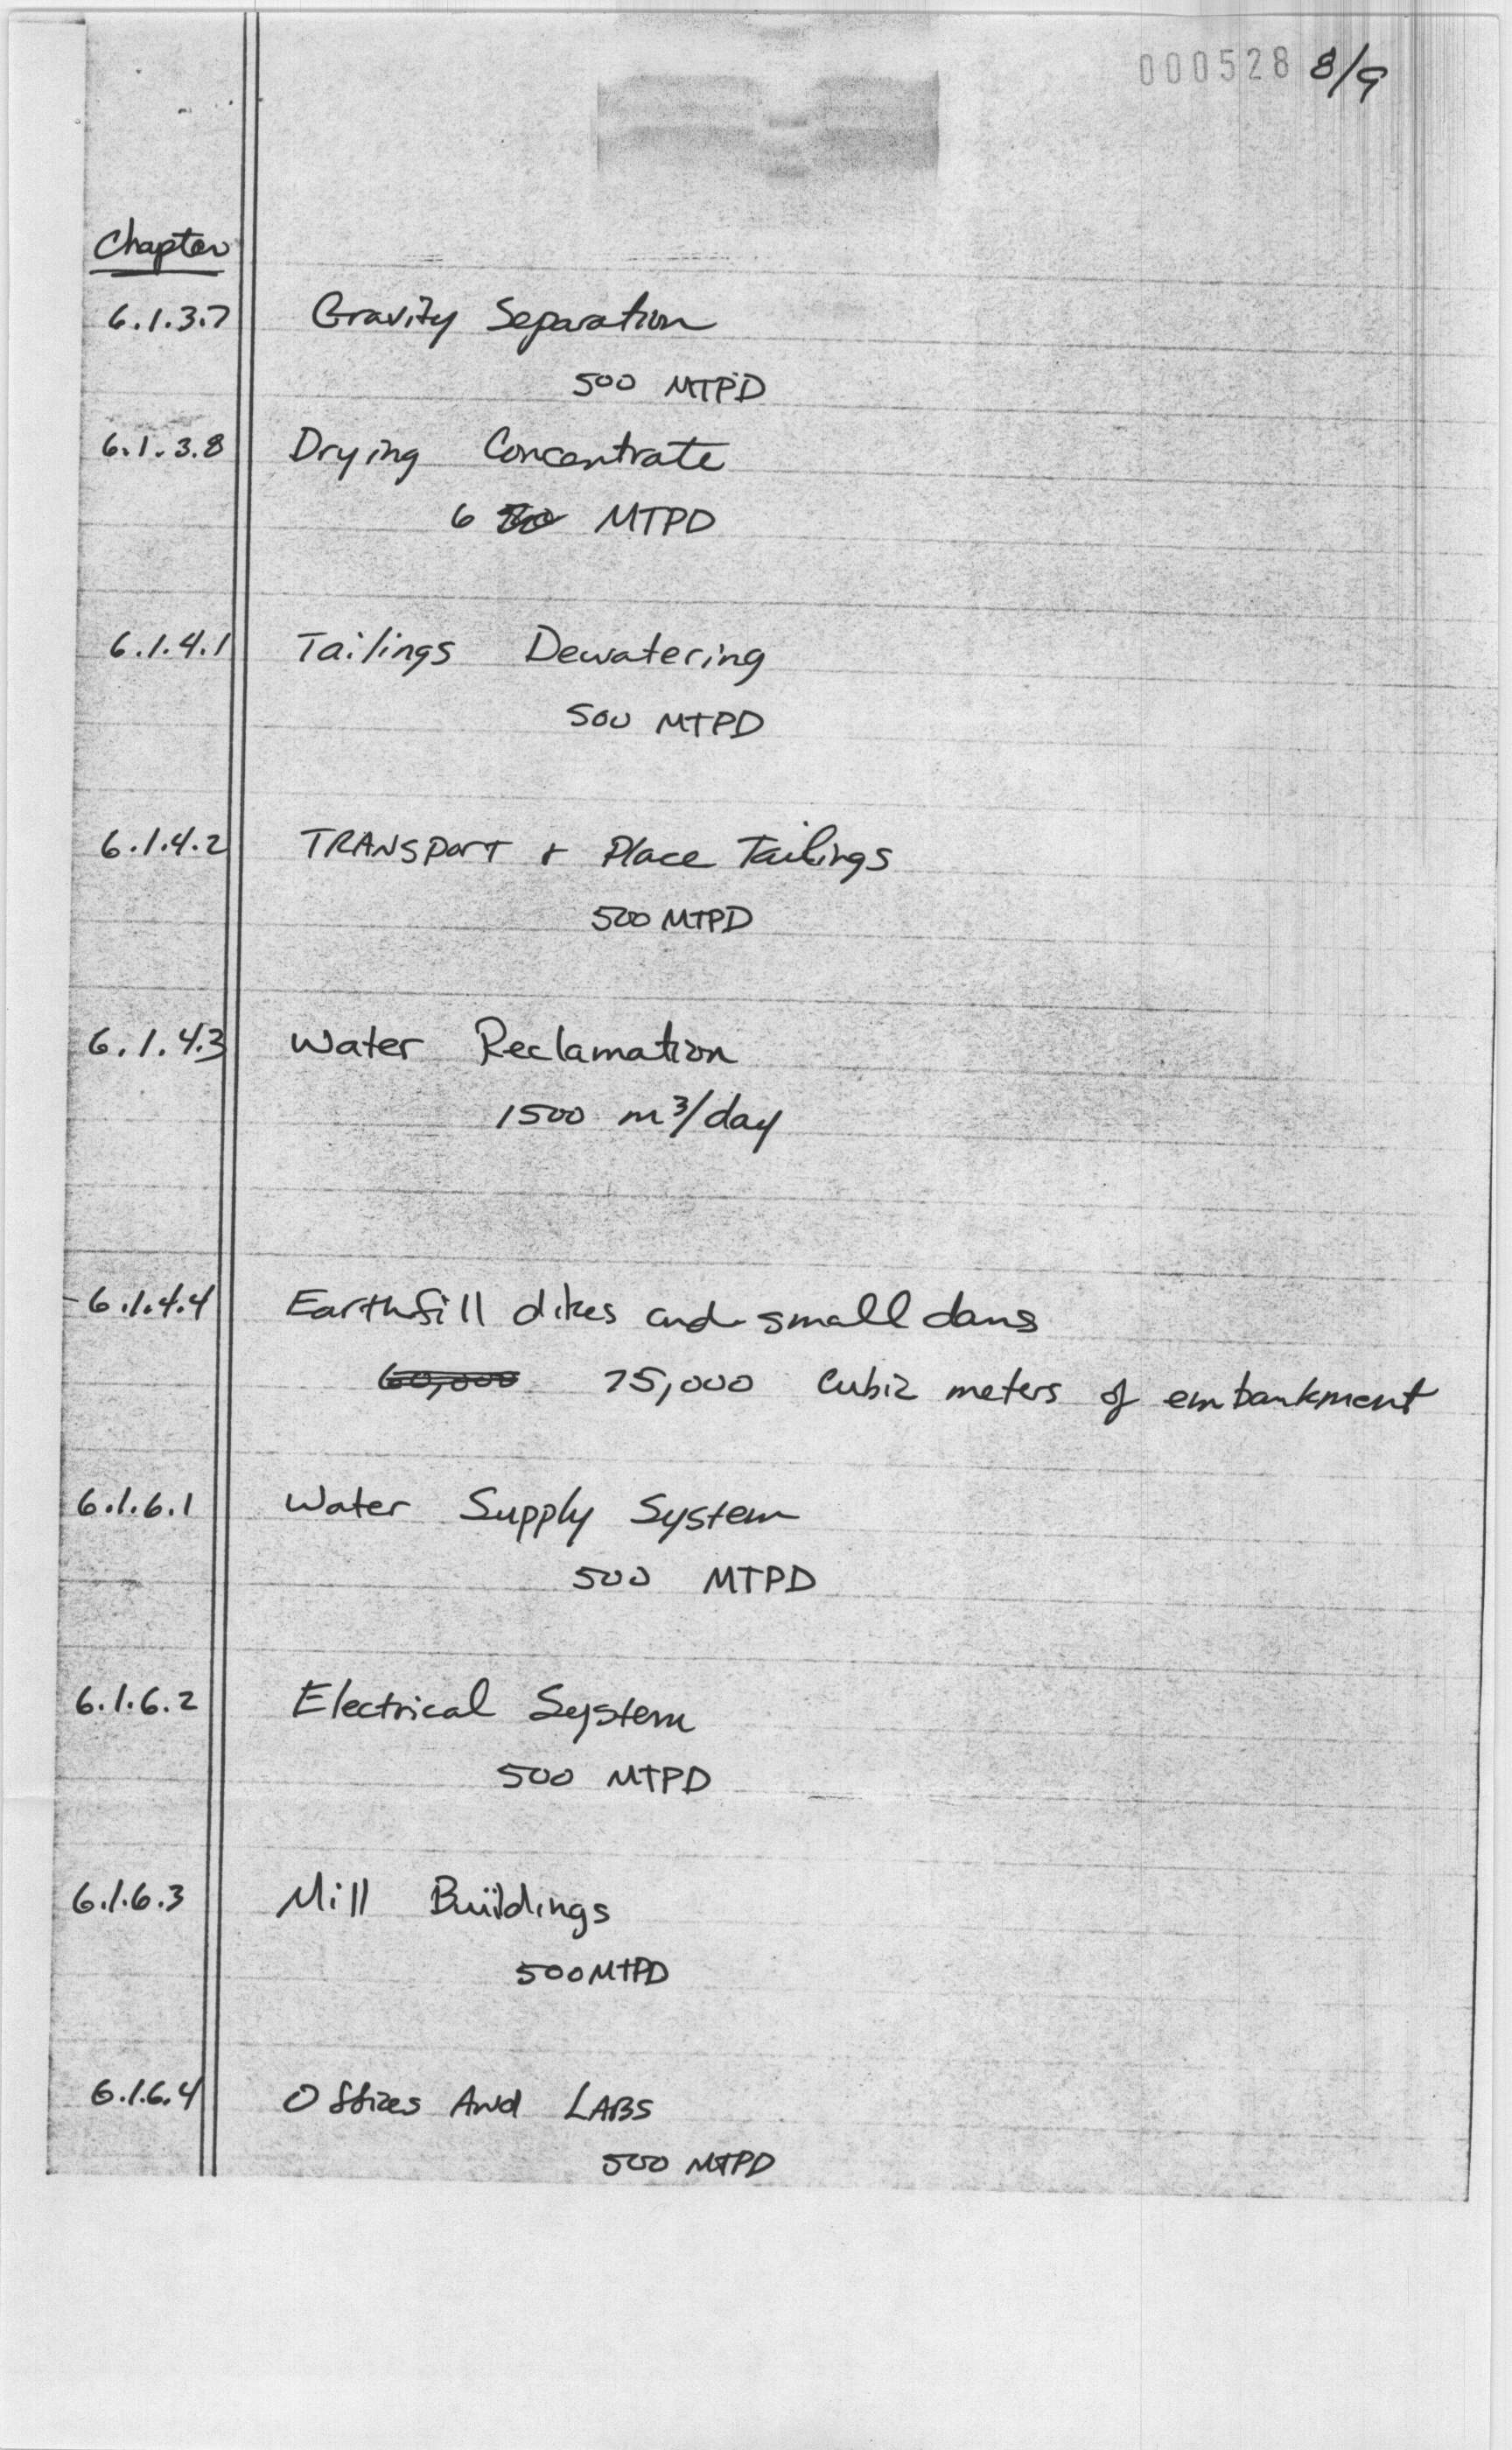 000528 8/9
Chapter
6.1.3.7 Gravity Separation
500 MTPD
6.1.3.8 Drying Concentrate
6 MTPD
6.1.4.1 Tailings Dewatering
500 MTPD
6.1.4.2 TRANSPORT + Place Tailings
500 MTPD
6.1.4.3 Water Reclamation
1500 m³/day
6.1.4.4 Earthfill dikes and small dams
60,000 75,000 Cubic meters of embankment
6.1.6.1 Water Supply System
500 MTPD
6.1.6.2 Electrical System
500 MTPD
6.1.6.3 Mill Buildings
500 MTPD
6.1.6.4 Offices And LABS
500 MTPD